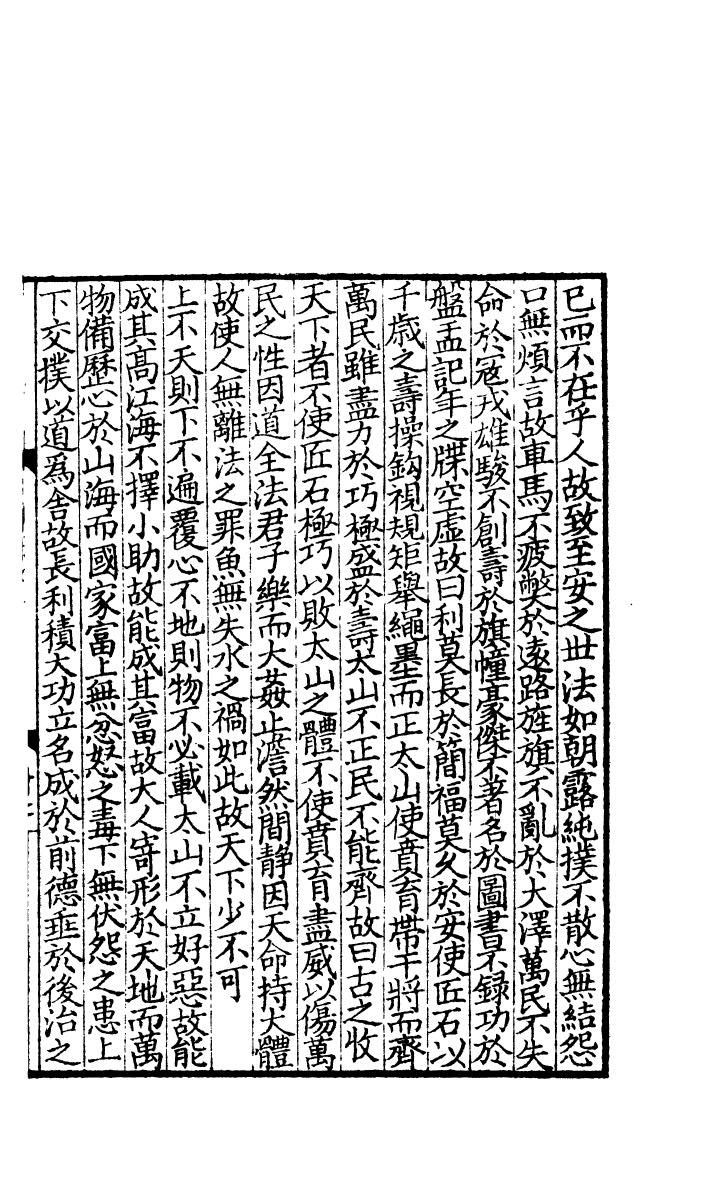 已而不在乎人故致至安之世法如朝露純撲不散心無結怨
口無煩言故車馬不疲弊於遠路旌旗不亂於大澤萬民不失
命於宼戎雄駿不創壽於旗幢豪傑不著名於圖書不録功於
盤盂記年之牒空虛故曰利莫長於簡福莫久於安使匠石以
千歳之壽操鈎視規矩舉繩墨而正太山使賁育帶干將而齊
萬民雖盡力於巧極盛於壽太山不正民不能齊故曰古之牧
天下者不使匠石極巧以敗太山之體不使賁育盡威以傷萬
民之性因道全法君子樂而大姦止澹然閒靜因天命持大體
故使人無離法之罪魚無失水之禍如此故天下少不可
上不天則下不遍覆心不地則物不必載太山不立好惡故能
成其髙江海不擇小助故能成其富故大人寄形於天地而萬
物備歷心於山海而國家富上無忿怒之毒下無伏怨之患上
下交撲以道爲舍故長利積大功立名成於前德垂於後治之